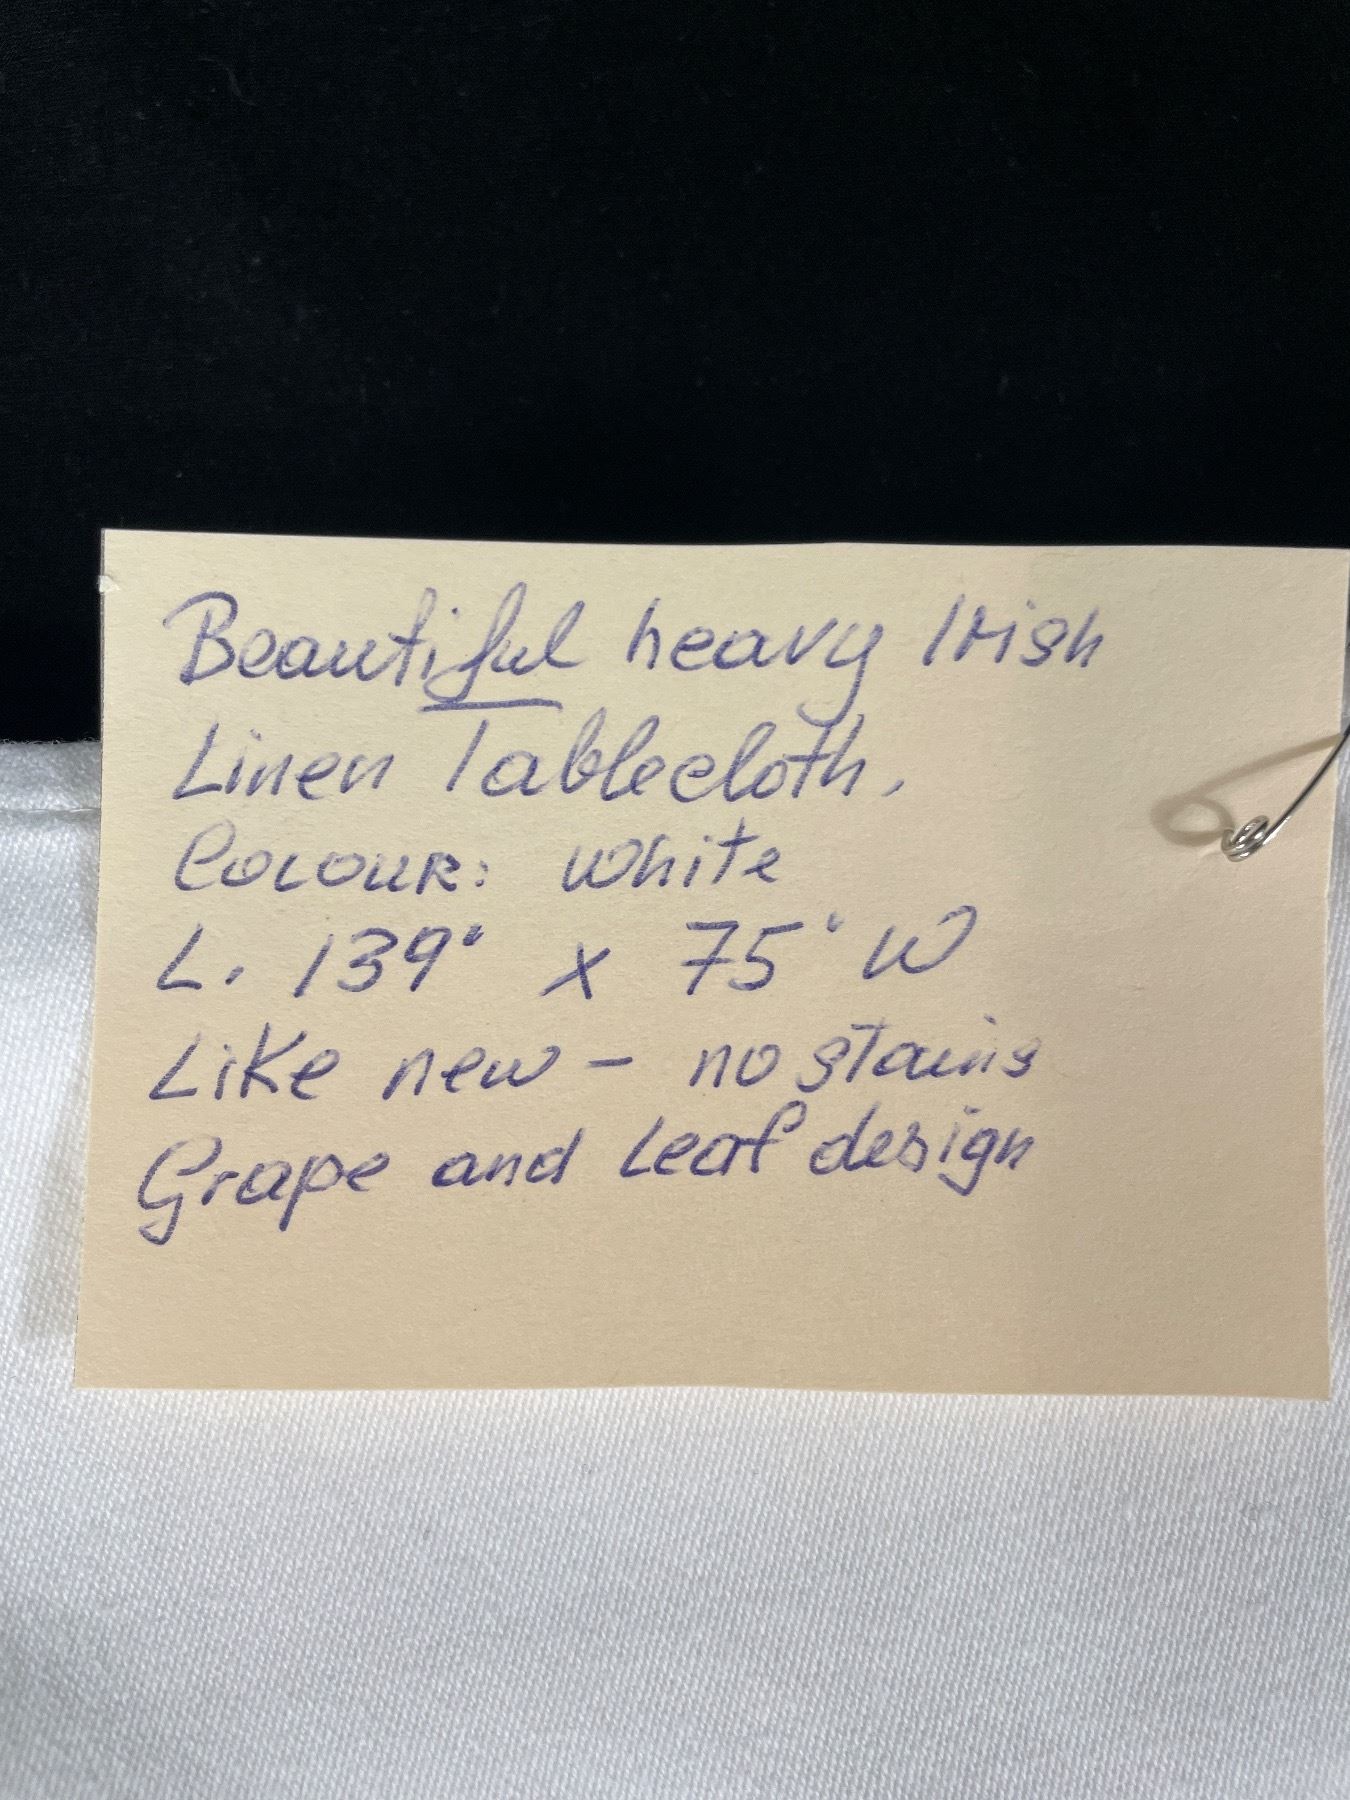 Beautiful heavy Irish
Linen Tablecloth,
Colour: White
L. 139" x 75" W
Like new - no stains
Grape and Leaf design